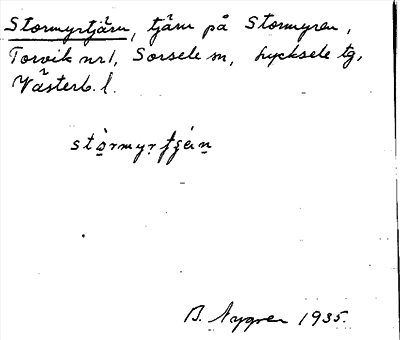 Stormyrtjärn, tjärn på Stormyren,
Torvik nr 1, Sorsele sn, Lycksele tg,
Västerb. l.
stò̱rmyṛtjä́ṉ
B. Nygren 1935.